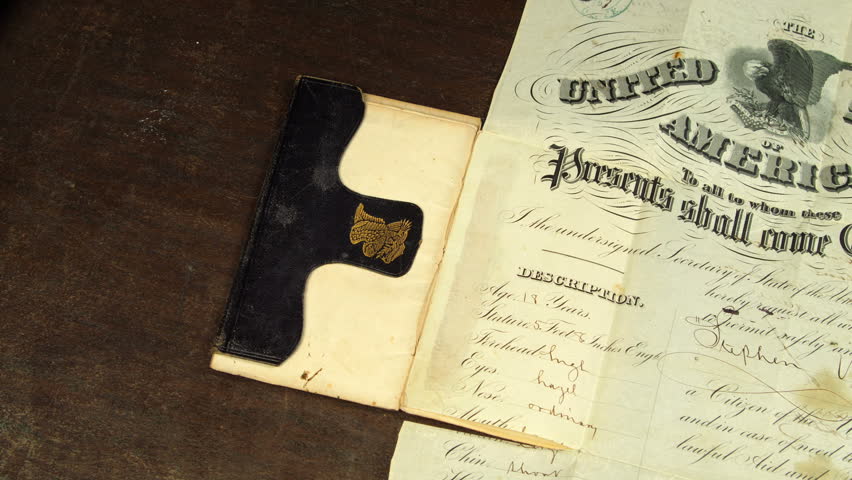 THE
UNITED
OF
AMERIC
To all to whom these
Presents shall come
I the undersigned Secretary of State of the
hereby request all
to permit safely
Stephen
DESCRIPTION.
Age, 18 Years.
Stature, 5 Feet 8 Inches Engl
Forehead, high
Eyes, hazel
Nose, ordinary
Mouth,
Chin, short
a Citizen of the
and in case of need to
lawful Aid and